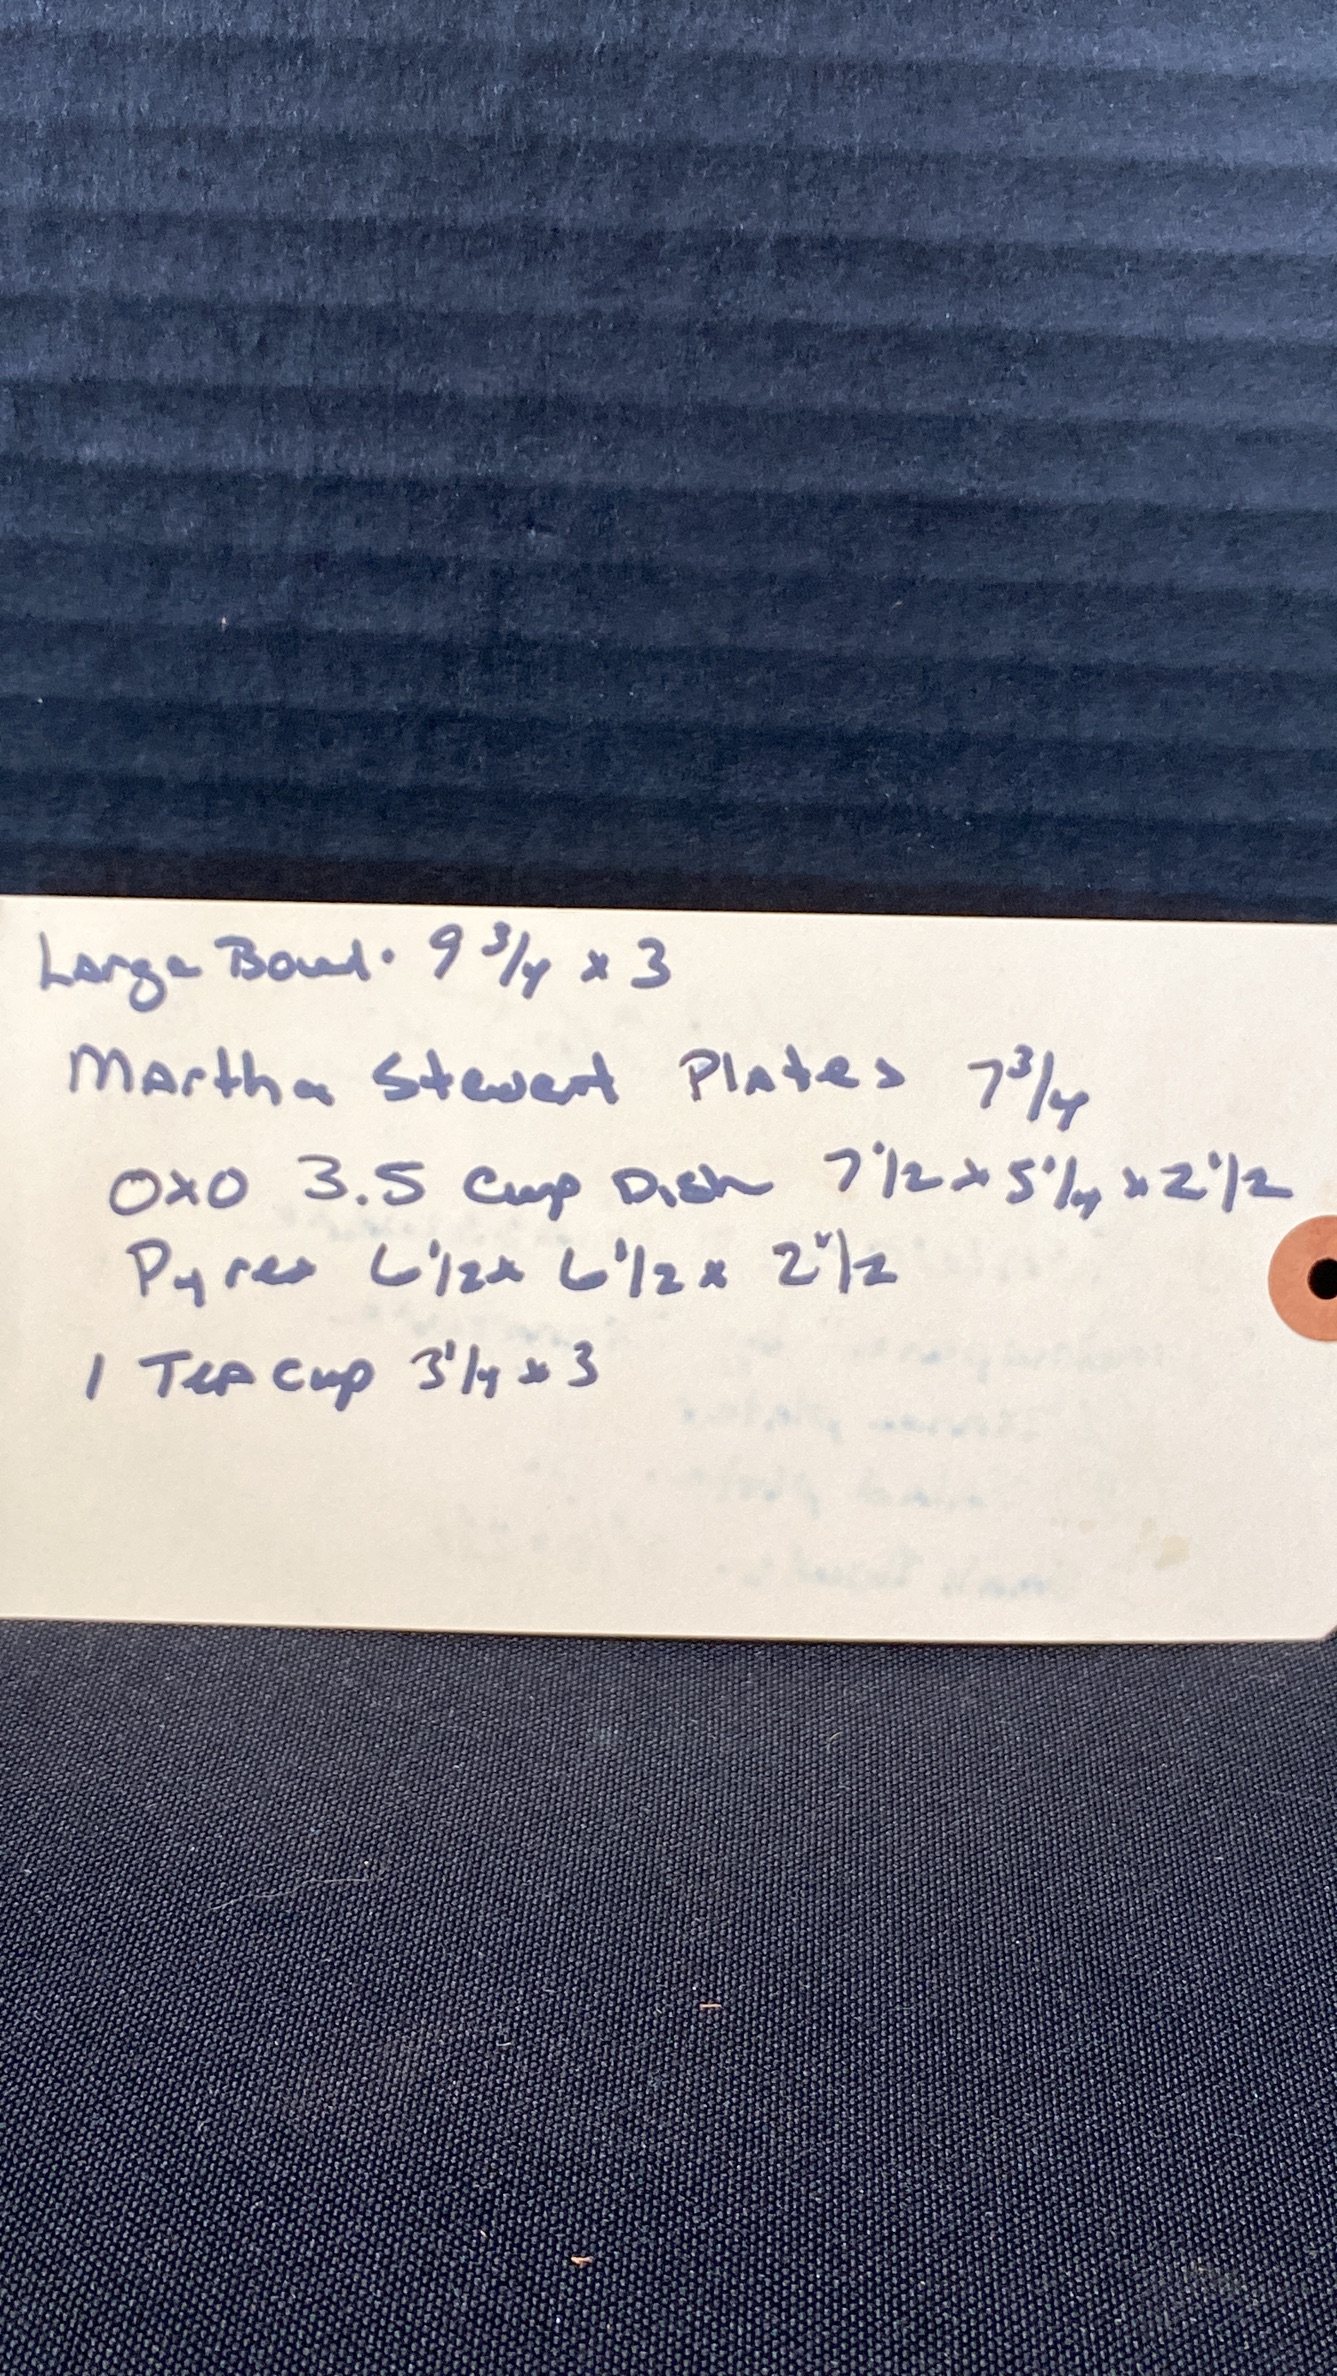 Large Bowl. 9 3/4 x 3
Martha Stewart Plates 7 3/4
OXO 3.5 Cup Dish 7 1/2 x 5 1/4 x 2 1/2
Pyrex 6 1/2 x 6 1/2 x 2 1/2
1 Tea Cup 3 1/4 x 3